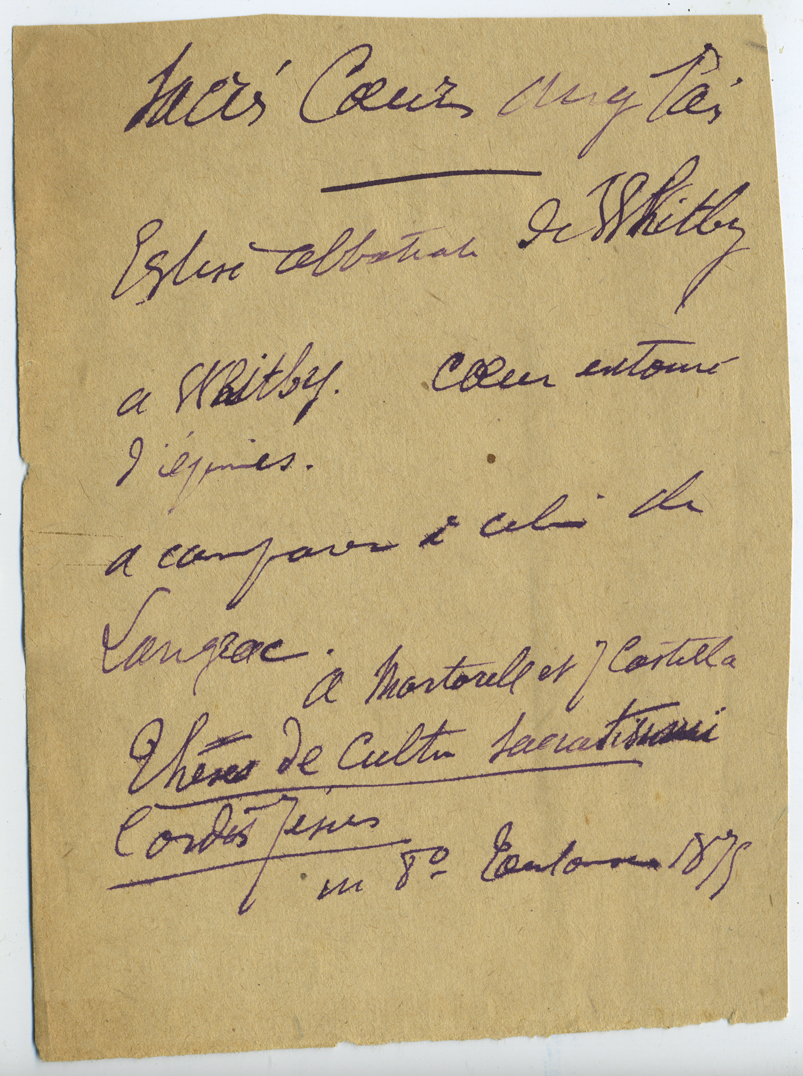 Sacré Cœur anglais
Eglise abbatiale de Whitby
a Whitby. Cœur entouré
d'épines.
a comparer à celui de
Langeac.
A Martorell et J Castella
Theses de Cultu Sacratissimi
Cordis Jesus
in 8º Toulouse 1875